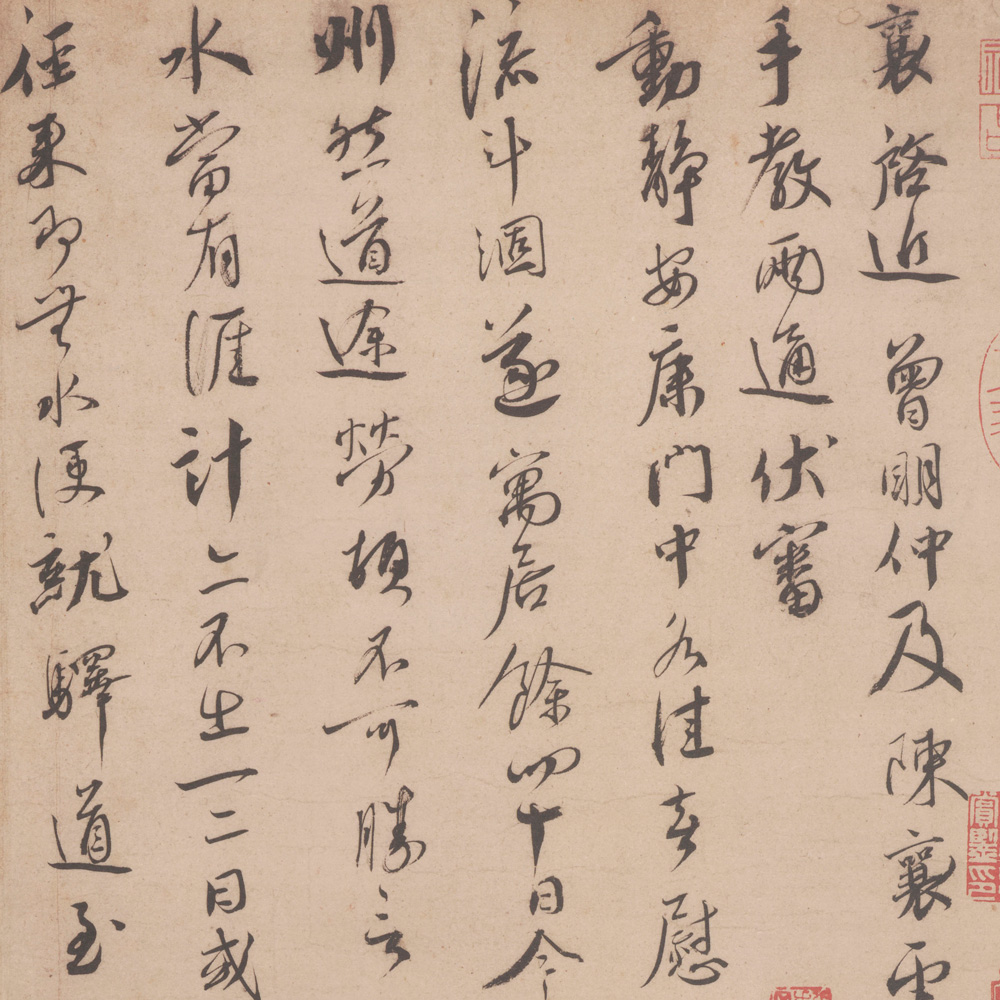 襄啓近曾明仲及陳襄
手教兩通伏審
動靜安康門中各佳喜慰
流斗涸遂寓居餘四十日今
州然道途勞頓不可勝言
水當有涯計亦不出一二日或
徑來即無水便就驛道至